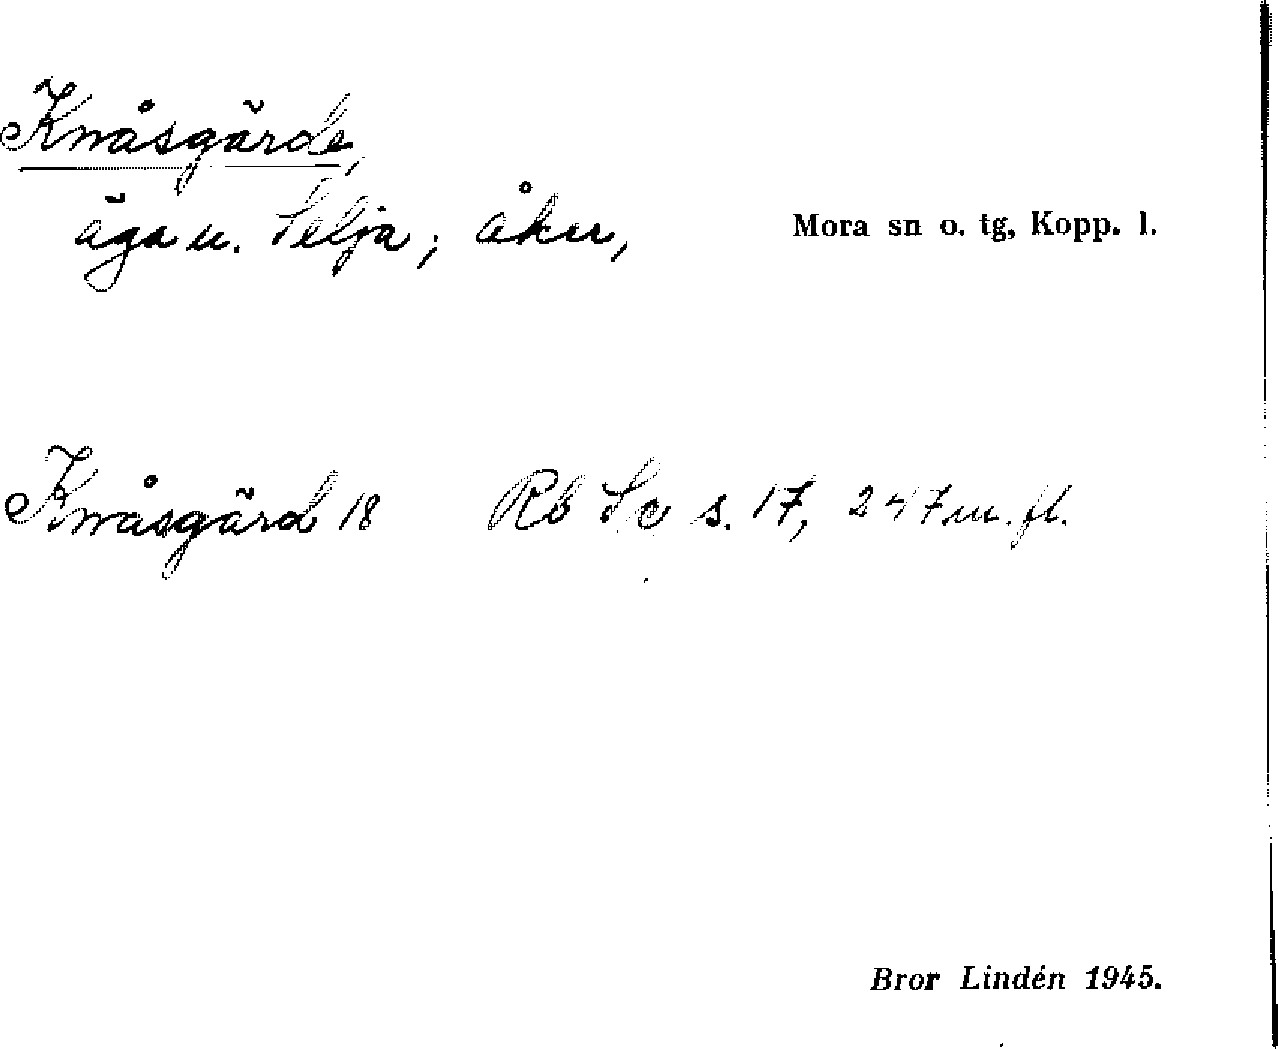 Knåsgärde,
äga u. Selja; åker,
Mora sn o. tg, Kopp. l.
Knåsgärd 18 Rb Se s. 17, 247 m. fl.
Bror Lindén 1945.